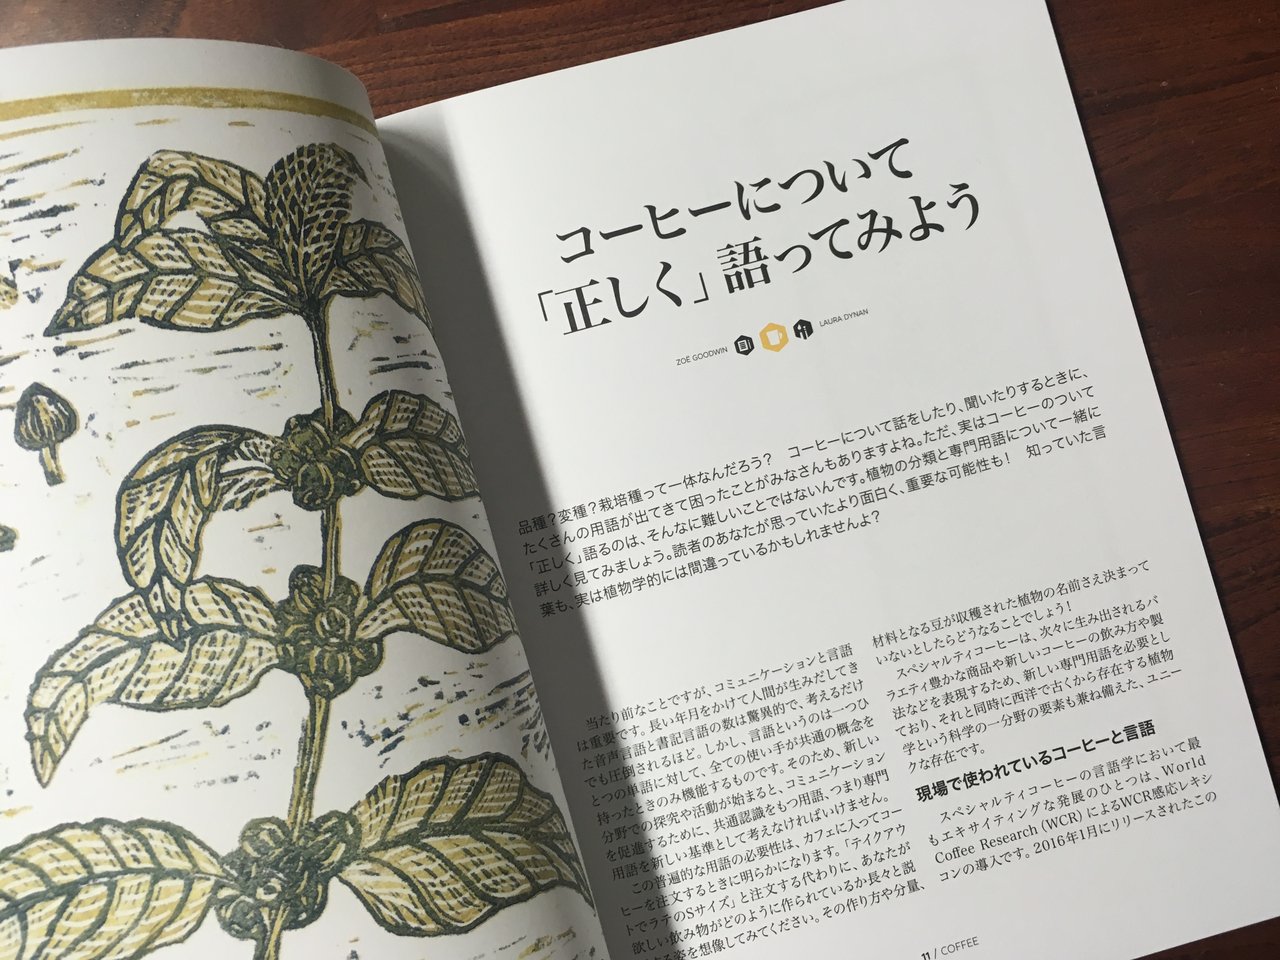 コーヒーについて
「正しく」語ってみよう
ZOË GOODWIN
LAURA DYNAN
品種？変種？栽培種って一体なんだろう？　コーヒーについて話をしたり、聞いたりするときに、
たくさんの用語が出てきて困ったことがみなさんもありますよね。ただ、実はコーヒーのついて
「正しく」語るのは、そんなに難しいことではないんです。植物の分類と専門用語について一緒に
詳しく見てみましょう。読者のあなたが思っていたより面白く、重要な可能性も！　知っていた言
葉も、実は植物学的には間違っているかもしれませんよ？
当たり前なことですが、コミュニケーションと言語
は重要です。長い年月をかけて人間が生みだしてき
た音声言語と書記言語の数は驚異的で、考えるだけ
でも圧倒されるほど。しかし、言語というのは一つひ
とつの単語に対して、全ての使い手が共通の概念を
持ったときのみ機能するものです。そのため、新しい
分野での探究や活動が始まると、コミュニケーション
を促進するために、共通認識をもつ用語、つまり専門
用語を新しい基準として考えなければいけません。
この普遍的な用語の必要性は、カフェに入ってコー
ヒーを注文するときに明らかになります。「テイクアウ
トでラテのSサイズ」と注文する代わりに、あなたが
欲しい飲み物がどのように作られているか長々と説
る姿を想像してみてください。その作り方や分量、
材料となる豆が収穫された植物の名前さえ決まって
いないとしたらどうなることでしょう！
スペシャルティコーヒーは、次々に生み出されるバ
ラエティ豊かな商品や新しいコーヒーの飲み方や製
法などを表現するため、新しい専門用語を必要とし
ており、それと同時に西洋で古くから存在する植物
学という科学の一分野の要素も兼ね備えた、ユニー
クな存在です。
現場で使われているコーヒーと言語
スペシャルティコーヒーの言語学において最
もエキサイティングな発展のひとつは、World
Coffee Research (WCR) によるWCR感応レキシ
コンの導入です。2016年1月にリリースされたこの
11 / COFFEE